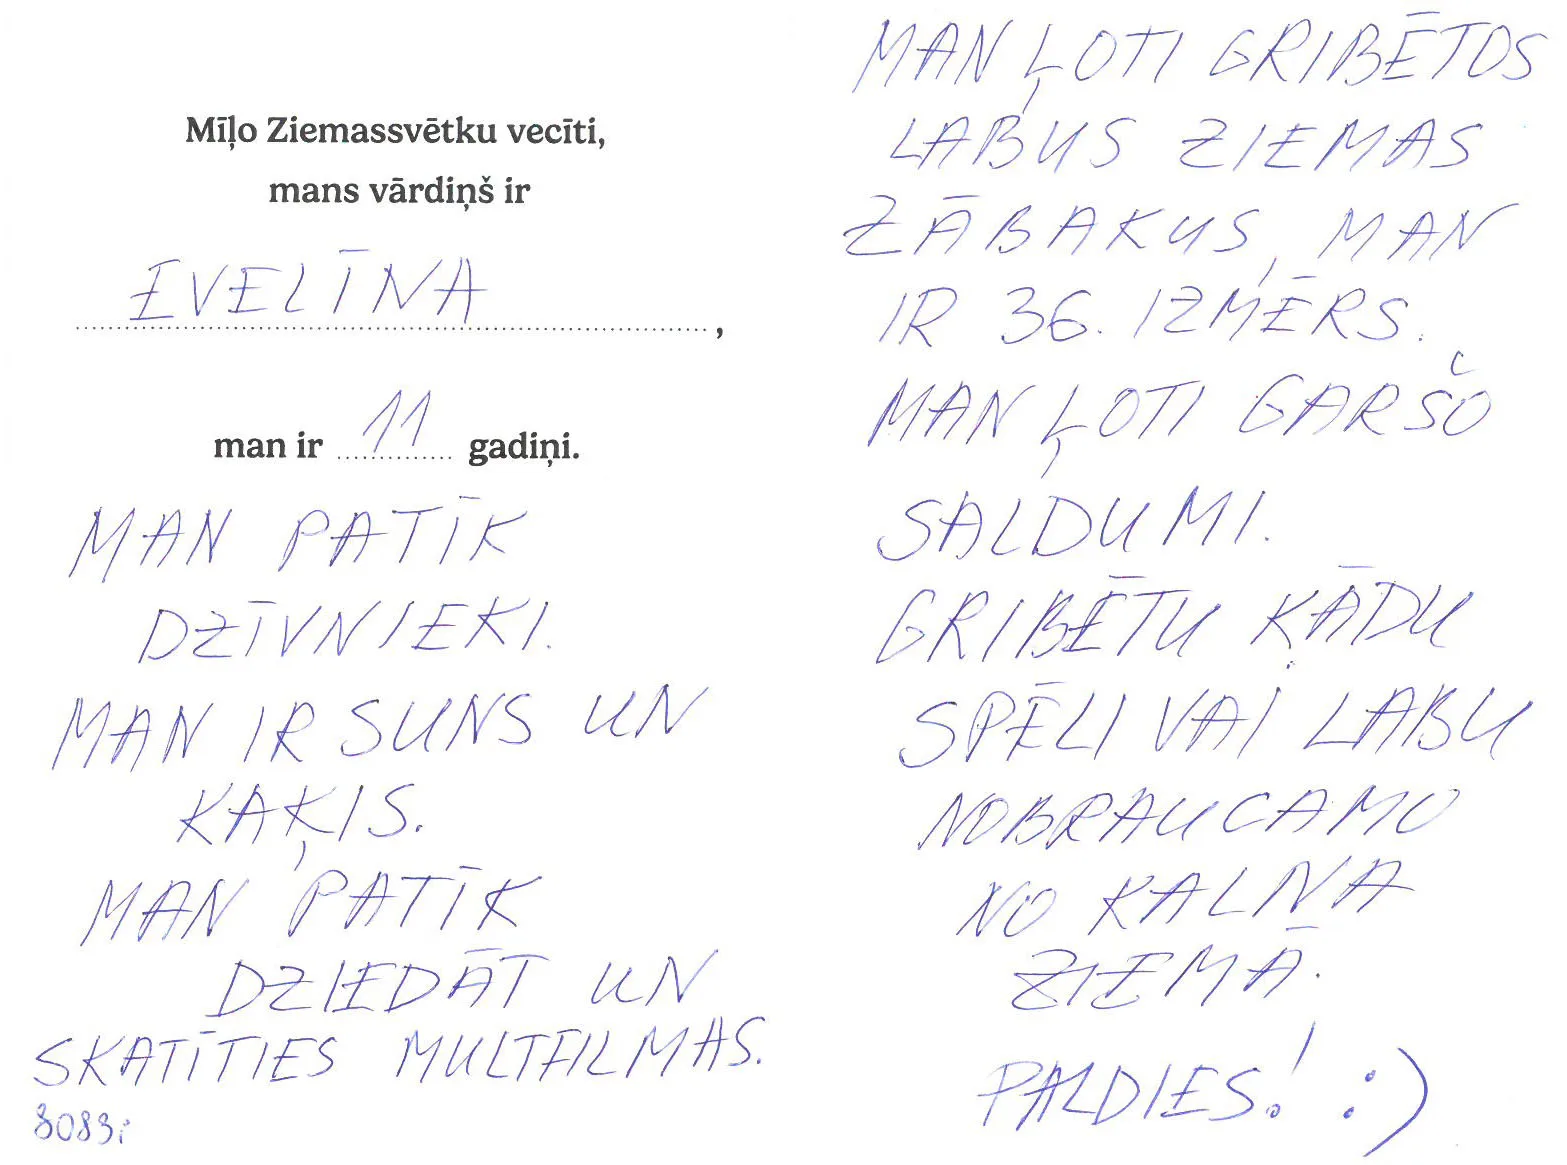 Mīļo Ziemassvētku vecīti,
mans vārdiņš ir
EVELĪNA,
man ir 11 gadiņi.
MAN PATĪK
DZĪVNIEKI.
MAN IR SUNS UN
KAĶIS.
MAN PATĪK
DZIEDĀT UN
SKATĪTIES MULTFILMAS.
8083i
MAN ĻOTI GRIBĒTOS
LABUS ZIEMAS
ZĀBAKUS, MAN
IR 36. IZMĒRS.
MAN ĻOTI GARŠO
SALDUMI.
GRIBĒTU KĀDU
SPĒLI VAI LABU
NOBRAUCAMO
NO KALNA
ZIEMĀ.
PALDIES! :)